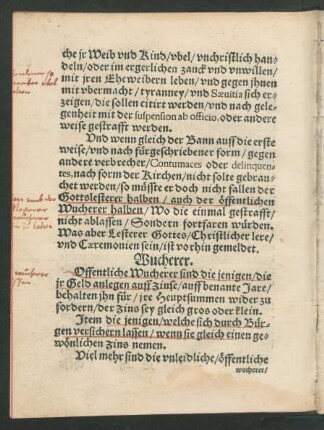 che jr Weib vnd Kind/vbel/vnchristlich han-
deln/oder im ergerlichen zanck vnd vnwillen/
mit jren Eheweibern leben/vnd gegen jhnen
mit vbermacht/tyranney/vnd Sæuitia sich er-
zeigen/die sollen citirt werden/vnd nach gele-
genheit mit der suspension ab officio, oder andere
weise gestrafft werden.
Vnd wenn gleich der Bann auff die erste
weise/vnd nach fürgeschriebener form/gegen
andere verbrecher/Contumaces oder delinquen-
tes, nach form der Kirchen/nicht solte gebrau-
chet werden/so müsste er doch nicht fallen der
Gottslesterer halben/auch der öffentlichen
Wucherer halben/Wo die einmal gestrafft/
nicht ablassen/Sondern fortfaren würden.
Was aber Lesterer Gottes/Christlicher lere/
vnd Cæremonien sein/ist vorhin gemeldet.
Wucherer.
Offentliche Wucherer sind die jenigen/die
jr Geld anlegen auff Zinse/auff benante Jare/
behalten jhn für/jre Heuptsummen wider zu
fordern/der Zins sey gleich gros oder klein.
Item die jenigen/welche sich durch Bür-
gen versichern lassen/wenn sie gleich einen ge-
wönlichen Zins nemen.
Viel mehr sind die vnleidliche/öffentliche
wucherer/